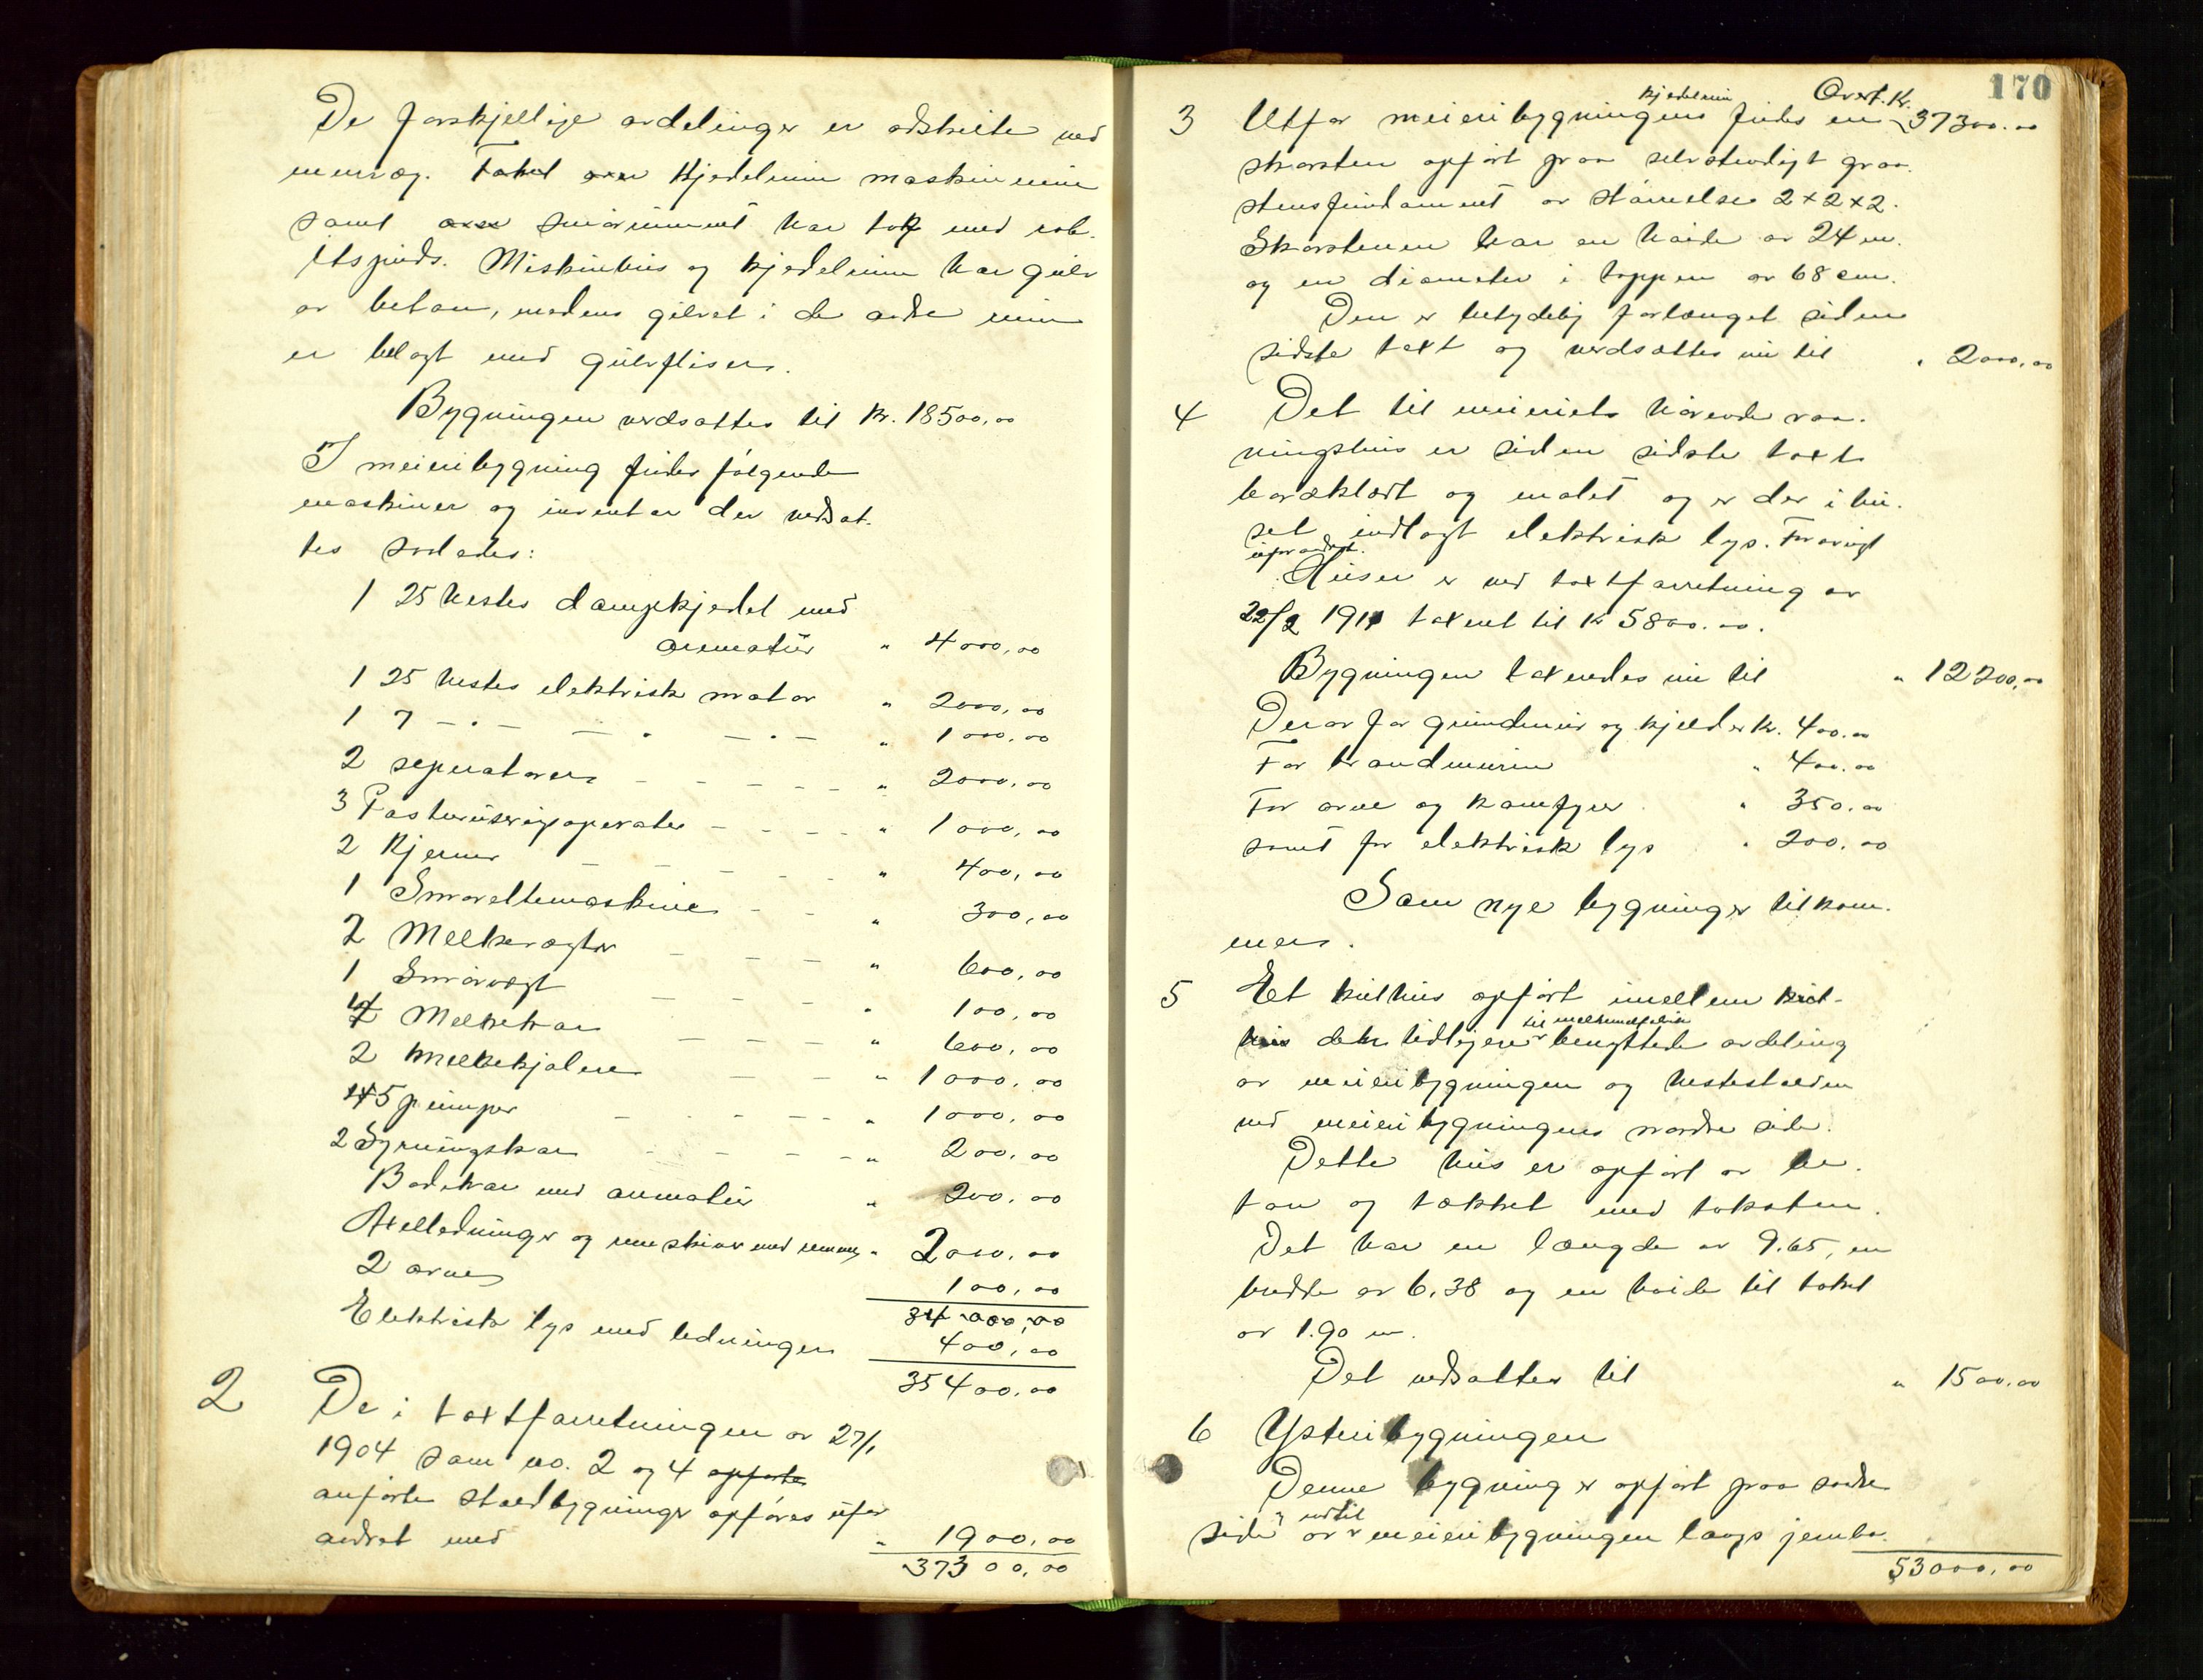 De forskjellige avdelinger er adskilte ved
murvæg. Taket over kjedelrum maskinrum
samt over smørrummet har tak med rab-
itspuds. Maskinhus og kjedelrum har gulv
av beton, medens gulvet i de andre rum
er belagt med gulvfliser.
Bygningen verdsattes til kr. 18500,00
I meieribygning findes følgende
maskiner og inventar der verdsat-
tes saaledes:
1 25 hestes dampkjedel med
armatur " 4000,00
1 25 hestes elektrisk motor " 2000,00
1 7 — " — — " — " — " 1000,00
2 separatorer - - - - " 2000,00
3 Pasteuriseringsaperater - - - - " 1000,00
2 Kjerner - - - - - " 400,00
1 Smøreltemaskine - - " 300,00
2 Melkevægter - - - " 600,00
1 Smørvægt - - - " 100,00
4 Melkekar - - - - " 600,00
2 Melkekjølere - - - " 1000,00
5 pumper - - - - - " 1000,00
2 Syrningskar - - - - " 200,00
Badekar med armatur " 200,00
Akselledninger og remskiver med remmer " 2000,00
2 ovne 100,00
34.000,00
Elektrisk lys med ledninger 400,00
35400,00
2 De i takstforretningen av 27/1
1904 som no. 2 og 4 opførte
anførte staldbygninger opføres ufor
andret med " 1900,00
37300,00
170
Overf. kr.
kjedelrum
3 Utfor meieribygningens findes en 37300.00
skorsten opført paa selvstendigt graa-
stensfundament av størrelse 2×2×2.
Skorstenen har en høide av 24 m.
og en diameter i toppen av 68 cm.
Den er betydelig forlænget siden
sidste takst og verdsættes nu til " 2000,00
4 Det til meieriets hørende vaa-
ningshus er siden sidste takst
bordklædt og malet og er der i hu-
set indlagt elektrisk lys. Forøvrigt
uforandret.
Huset er ved takstforretning av
22/2 1911 taksert til kr 5800.00.
Bygningen takseredes nu til " 12200,00
Derav for grundmur og kjelder kr. 400.00
For brandmuren " 400.00
For ovne og komfyrer " 350.00
samt for elektrisk lys " 200.00
Som nye bygninger tilkom-
mer.
5 Et kulhus opført imellem kul-
til melkemelfabrik
hus den tidligere benyttede avdeling
av meieribygningen og hestestalden
ved meieribygningens nordre side.
Dette hus er opført av be-
ton og tækket med taksten.
Det har en længde av 9.65, en
bredde av 6,38 og en høide til taket
av 1.90 m.
Det verdsattes til " 1500.00
6 Ysteribygningen
Denne bygning er opført paa søndre
og indtil
side av meieribygningen langs jernba-
53000,00